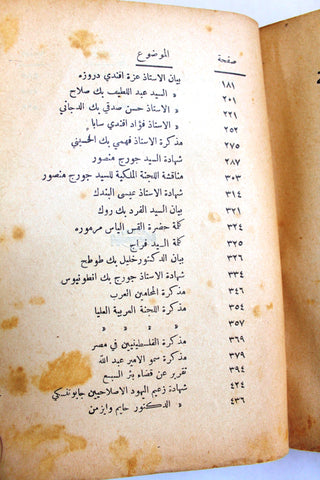 صفحة الموضوع
١٨١ بيان الاستاذ عزة افندي دروزه
٢٠١ « السيد عبد اللطيف بك صلاح
٢٢١ « الاستاذ حسن صدقي بك الدجاني
٢٥٢ « الاستاذ فؤاد افندي سابا
٢٧٥ مذكرة الاستاذ فهمي بك الحسيني
٢٨٧ شهادة السيد جورج منصور
٣٠٣ مناقشة اللجنة الملكية للسيد جورج منصور
٣١٤ شهادة الاستاذ عيسى البندك
٣٢١ بيان السيد الفرد بك روك
٣٢٤ كلمة حضرة القس الياس مرموره
٣٢٥ كلمة السيد فراج
٣٢٦ بيان الدكتور خليل بك طوطح
٣٣٤ شهادة الاستاذ جورج بك انطونيوس
٣٤٦ مذكرة المحامين العرب
٣٥٠ مذكرة اللجنة العربية العليا
٣٥٧ « « « «
٣٦٩ مذكرة الفلسطينيين في مصر
٣٧٩ مذكرة سمو الامير عبد الله
٣٩٤ تقرير عن قضاء بئر السبع
٤٢٤ شهادة زعيم اليهود الاصلاحيين جابوتنسكي
٤٣٦ « الدكتور حايم وايزمن